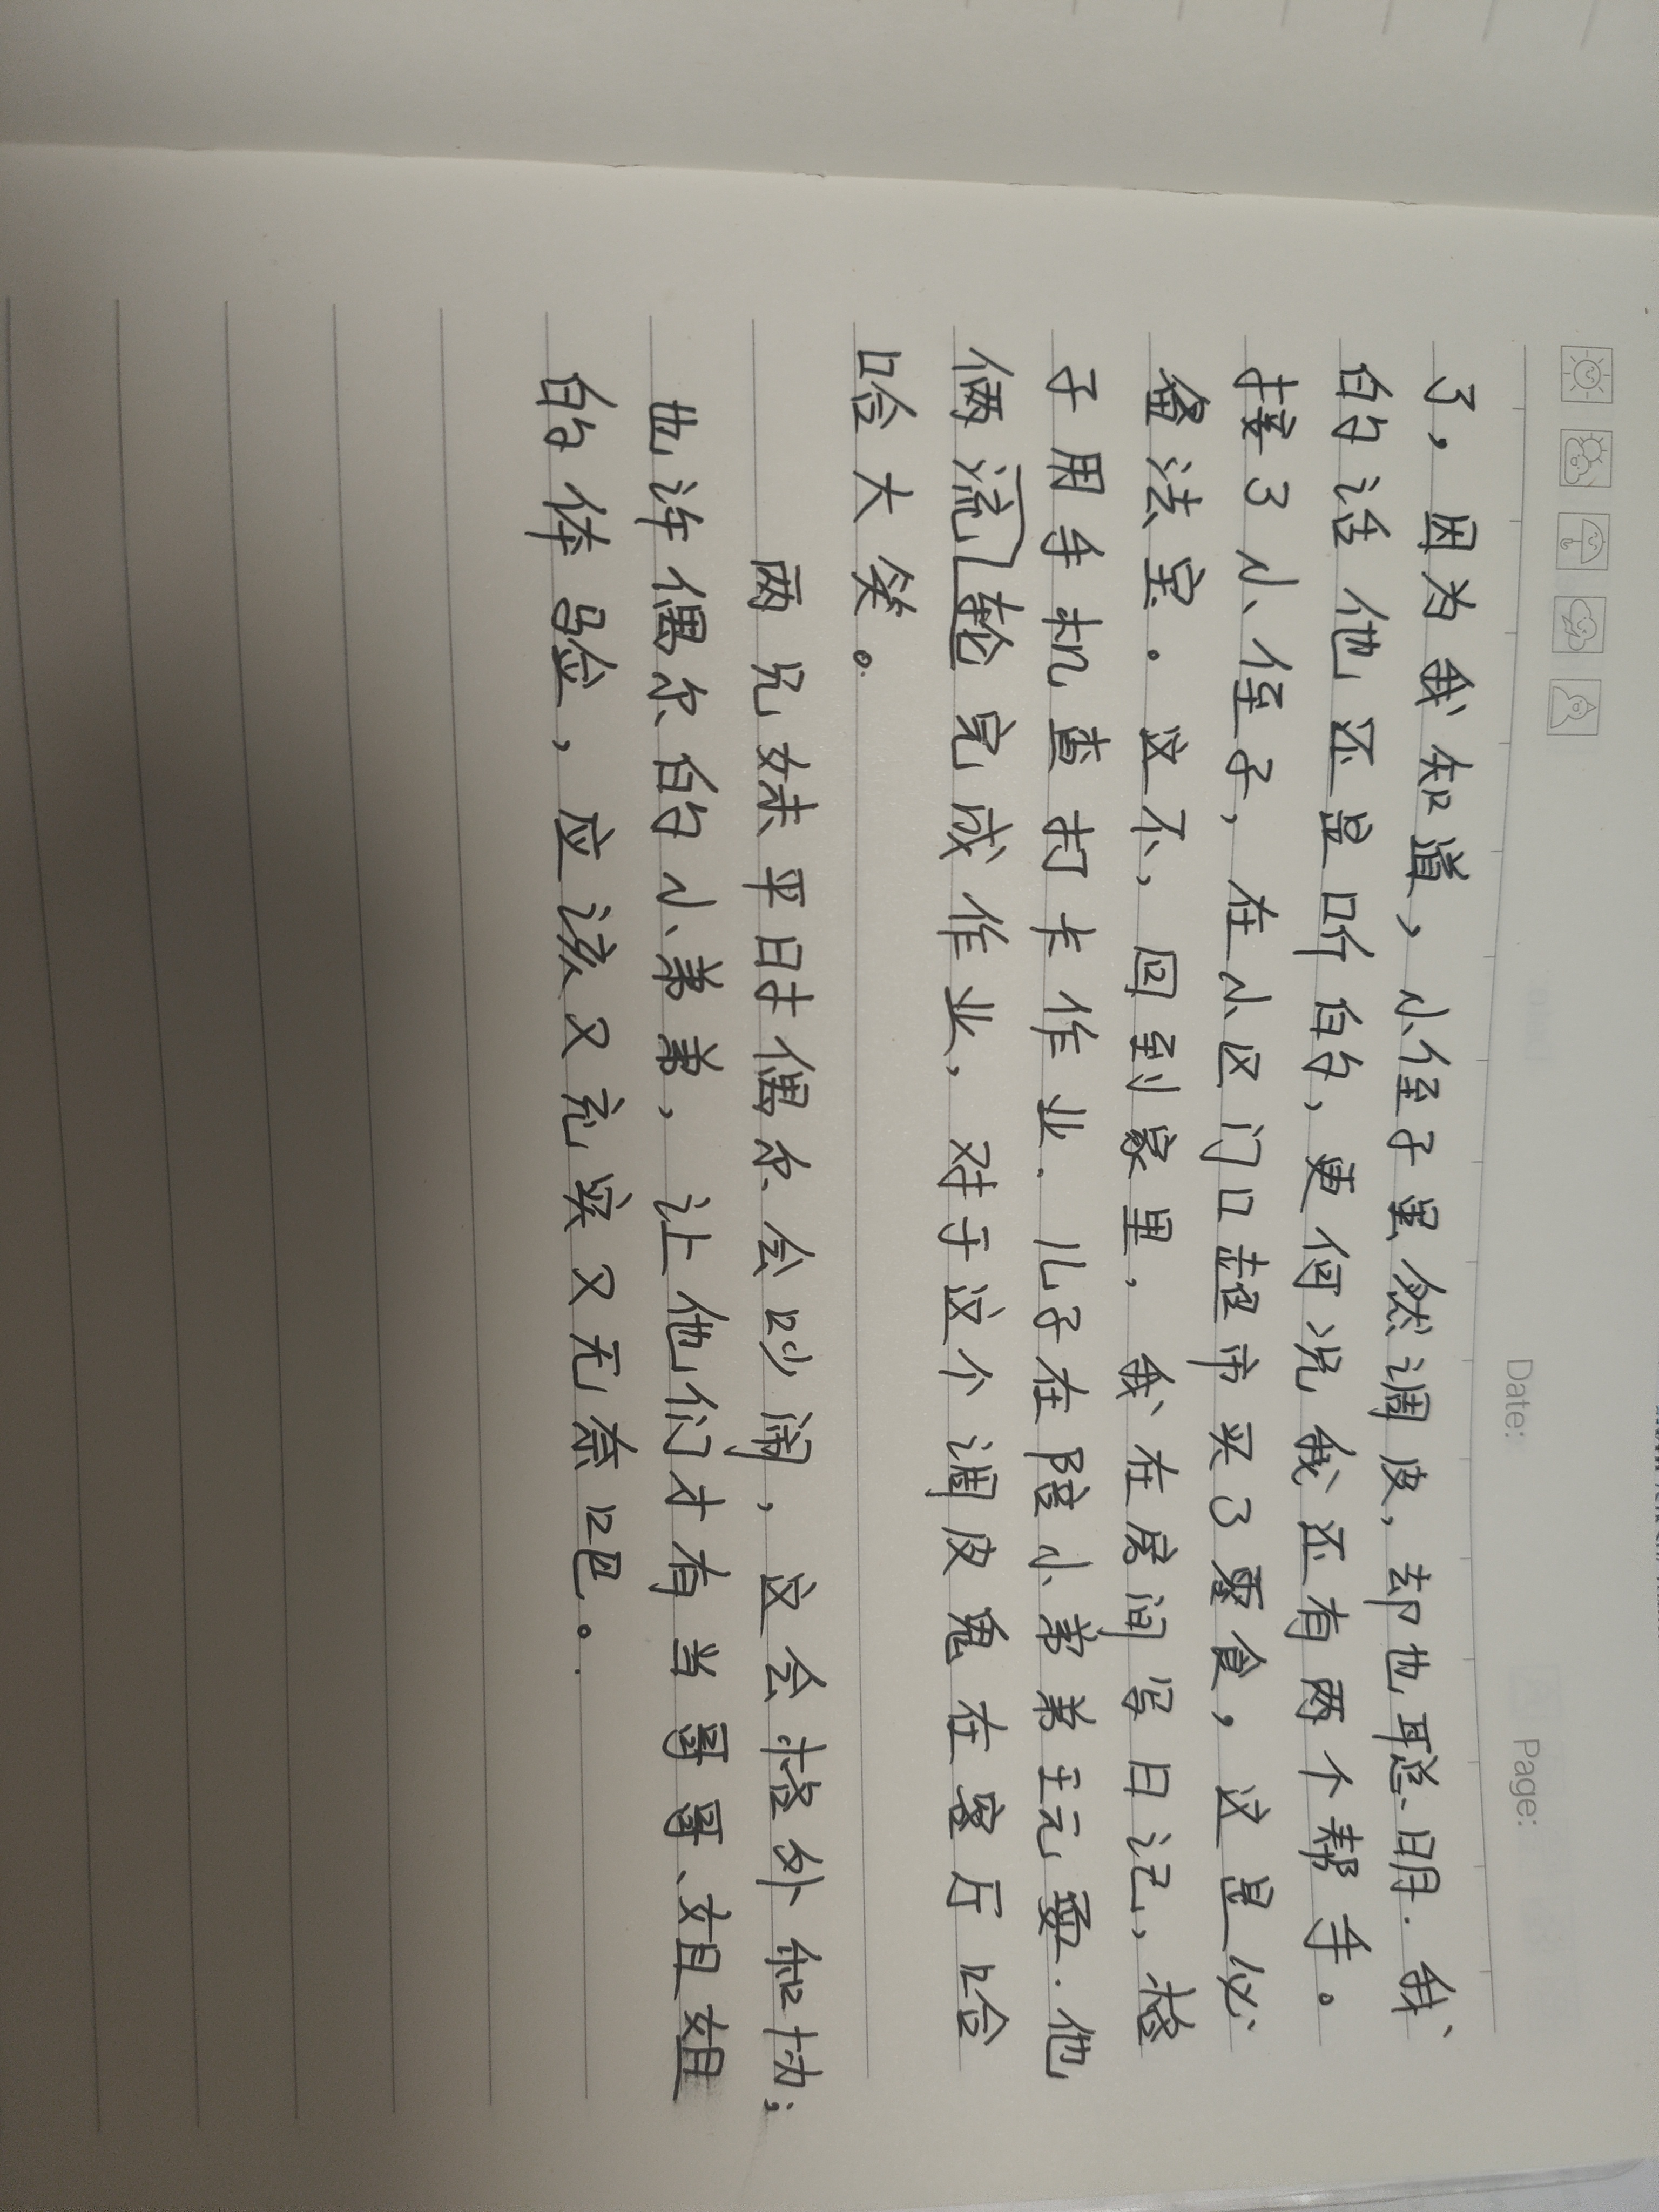 Date: Page:
了，因为我知道，小侄子虽然调皮，却也聪明．我
的话他还是听的，更何况我还有两个帮手。
接了小侄子，在小区门口超市买了零食，这是必
备法宝．这不，回到家里，我在房间写日记，橙
子用手机查打卡作业．儿子在陪小弟弟玩耍．他
俩流轮完成作业，对于这个调皮鬼在客厅哈
哈大笑。
两兄妹平日时偶尔会吵闹，这会格外和协；
也许偶尔的小弟弟，让他们才有当哥哥、姐姐
的体验，应该又充实又无奈吧。